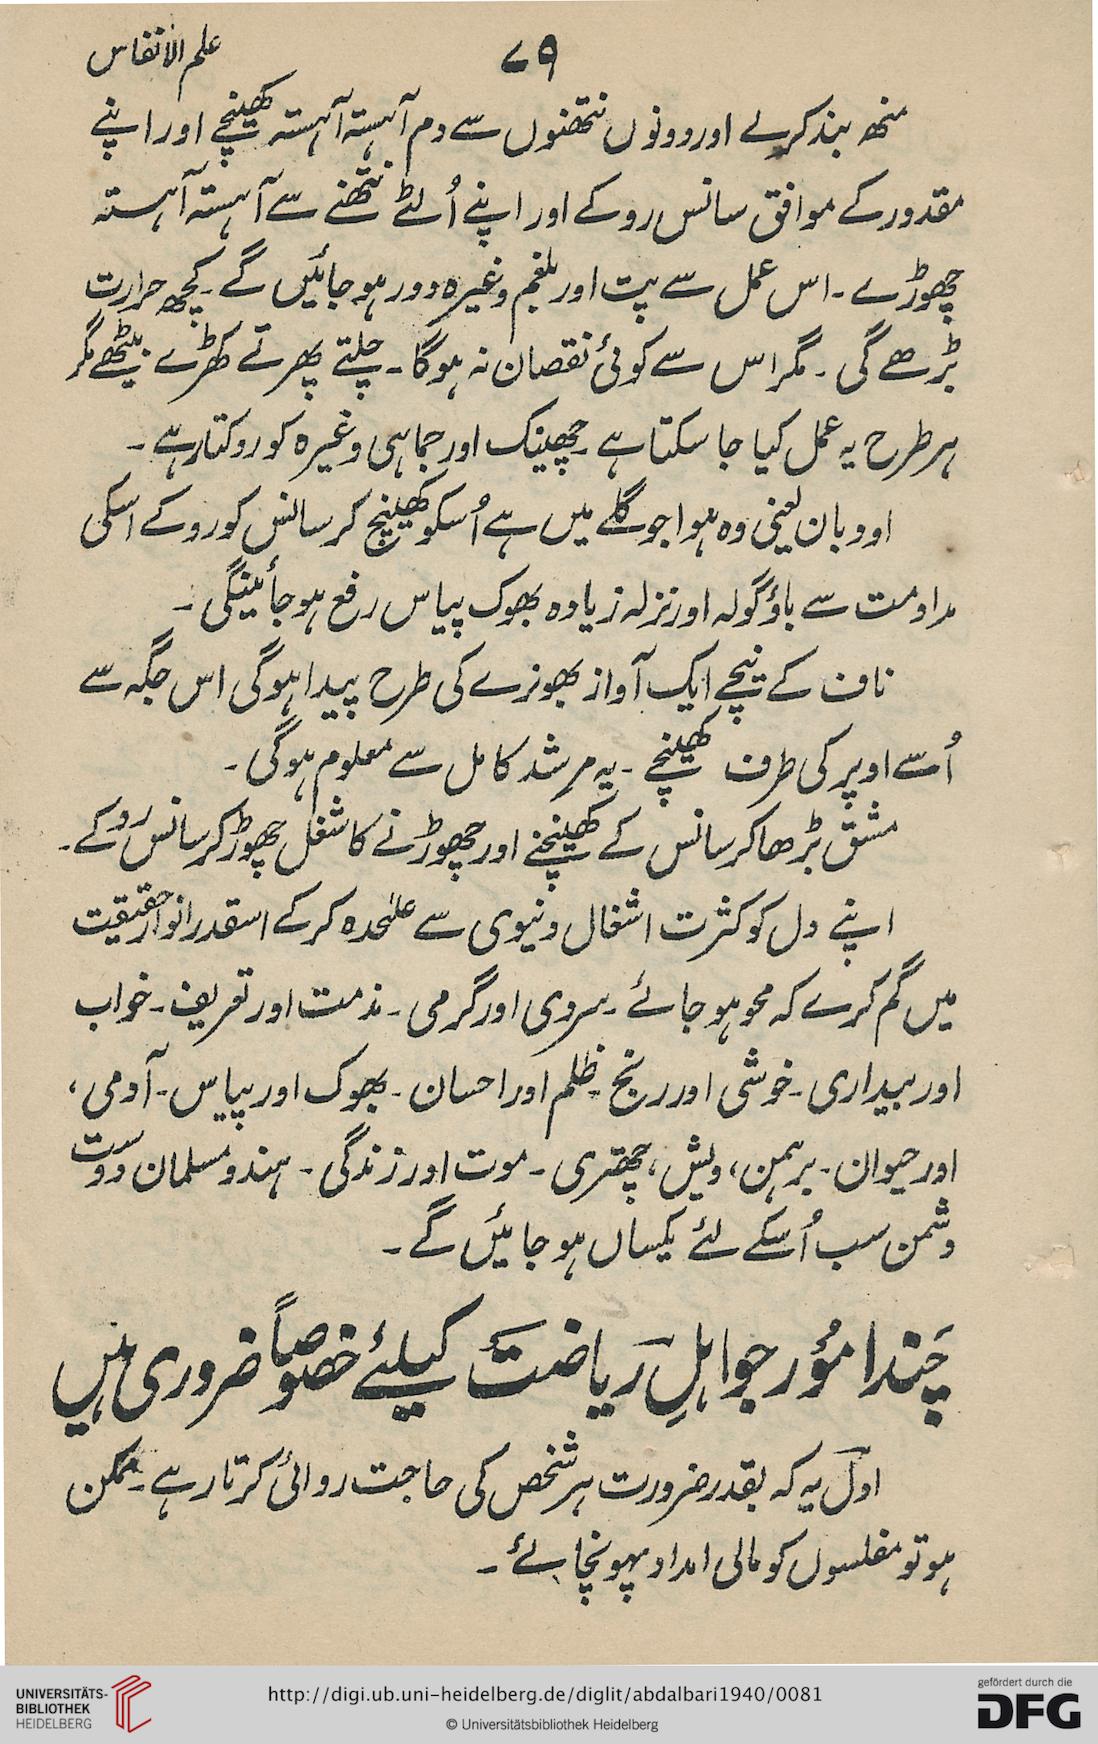 علم الانفاس
۷۹
منھ بند کرلے اور دونوں نتھنوں سے دم آہستہ آہستہ کھینچے اور اپنے
مقدور کے موافق سانس روکے اور اپنے اُلٹے نتھنے سے آہستہ آہستہ
چھوڑے ۔ اس عمل سے پت اور بلغم وغیرہ دور ہو جائیں گے ۔ کچھ حرارت
بڑھے گی ۔ مگر اس سے کوئی نقصان نہ ہوگا ۔ چلتے پھرتے کھڑے بیٹھے مگر
ہر طرح یہ عمل کیا جا سکتا ہے ۔ چھینک اور جماہی وغیرہ کو روکتا رہے ۔
اووبان یعنی وہ ہوا جو گلے میں ہے اُسکو کھینچ کر سانس کو روکے اسکی
مداومت سے باؤ گولہ اور نزلہ زیادہ بھوک پیاس رفع ہو جائینگی ۔
ناف کے نیچے ایک آواز بھونرے کی طرح پیدا ہوگی اس جگہ سے
اُسے اوپر کی طرف کھینچے ۔ یہ مرشد کامل سے معلوم ہوگی ۔
مشق بڑھا کر سانس کے کھینچنے اور چھوڑنے کا شغل چھوڑ کر سانس روکے ۔
اپنے دل کو کثرت اشغال دنیوی سے علٰحدہ کر کے اسقدر انوار حقیقیت
میں گم کرے کہ محو ہو جائے ۔ سردی اور گرمی ۔ مذمت اور تعریف ۔ خواب
اور بیداری ۔ خوشی اور رنج ۔ ظلم اور احسان ۔ بھوک اور پیاس ۔ آدمی ،
اور حیوان ۔ برہمن ، ویش ، چھتری ۔ موت اور زندگی ۔ ہندو مسلمان دوست
دشمن سب اُسکے لئے یکساں ہو جائیں گے ۔
چند امُور جو اہلِ ریاضت کیلئے خصوصاً ضروری ہیں
اول یہ کہ بقدر ضرورت ہر شخص کی حاجت روائی کرتا رہے ۔ ممکن
ہو تو مفلسوں کو مالی امداد پہونچائے ۔
UNIVERSITÄTS-
BIBLIOTHEK
HEIDELBERG
http://digi.ub.uni-heidelberg.de/diglit/abdalbari1940/0081
© Universitätsbibliothek Heidelberg
gefördert durch die
DFG